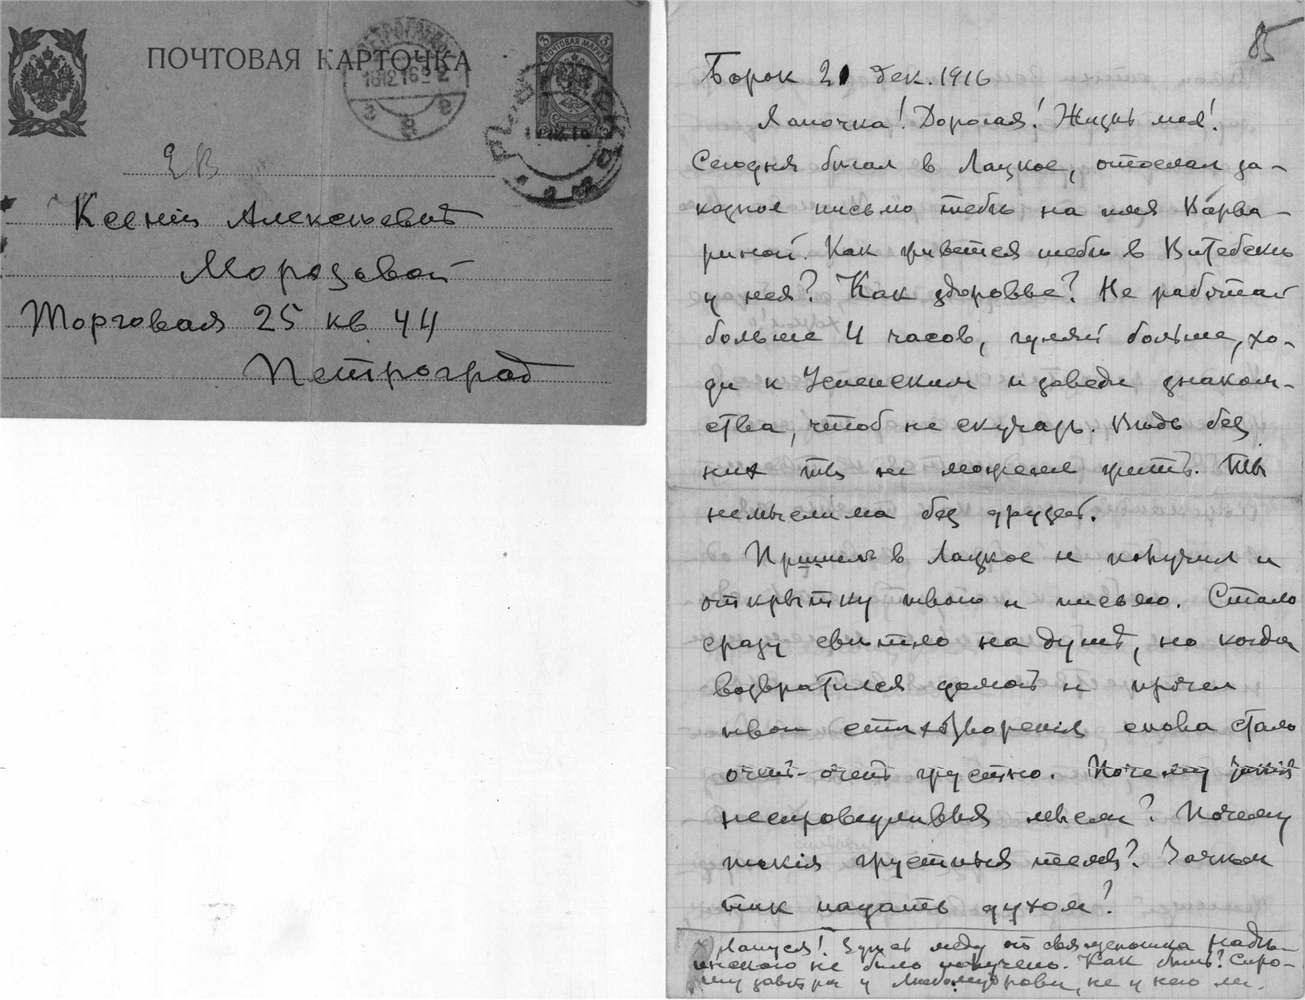 ПОЧТОВАЯ КАРТОЧКА
ПОЧТОВАЯ МАРКА
3
18 12 16
Ксеніи Алексѣевнѣ
Морозовой
Торговая 25 кв 44
Петроград
85
Борок 21 дек. 1916
Лапочка! Дорогая! Жизнь моя!
Сегодня бѣгал в Лацкое, отослал за-
казное письмо тебѣ на имя Варва-
риной. Как живется тебѣ в Витебскѣ
у нея? Как здоровье? Не работай
больше 4 часов, гуляй больше, хо-
ди к Успенским и заведи знаком-
ства, чтоб не скучать. Вѣдь без
них ты не можешь жить. Ты
немыслима без друзей.
Пришел в Лацкое и получил и
открытку твою и письмо. Стало
сразу свѣтло на душѣ, но когда
возвратился домой и прочел
твои стихотворенія снова стало
очень-очень грустно. Почему
несправедливыя мысли? Почему
такія грустныя темы? Зачѣм
так падать духом?
Лапуся! Здѣсь меду от священника
не было получено. Как быть? Спро-
шу завтра у не у него ли.